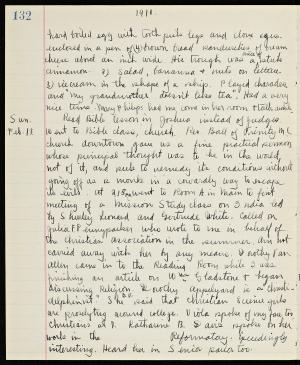 132 1911.
hard boiled egg with tooth pick legs and clove eyes.
enclosed in a pen of (4) brown bread sandwiches of cream
cheese about an inch wide His trough was a stick of
cinnamon. 2) Salad, bananna & nuts on lettuce.
3) ice cream in the shape of a Played charades,
and "my grandmother doesn't like tea". Had a very
nice time. Mary Philips had me come in her room
Sun. Read Bible lesson in Joshua instead of Judges.
Feb. 12 Went to Bible class, church Rev. Ball of Trinity M.C.
church downtown gave us a fine practical sermon
whose principal thought was to be in the world,
not of it, and to remedy its conditions without
going off as a monk in a cowardly way to escape
its evils. At 2.15 went to Room A in Main to first
meeting of a Mission Study class on India led
by Shirley Leonard and Gertrude White. Called on
Julia P. Pennypacker who wrote to me in behalf of
the Christian association in the summer. Am not
carried away with her by any means. Dorothy Van
Allen came in to the Reading Room while I was
finishing an article on Wm Gladstone & began
discussing Religion. Dorothy Appleyard is a Christ-
adelphian? She said that Christian Science girls
are proselyting around college. Viola spoke of my
Christians at 7. Katharine B. Davis spoke on her
work in the Reformatory. Exceedingly
interesting. Heard her in Senior parlor too.